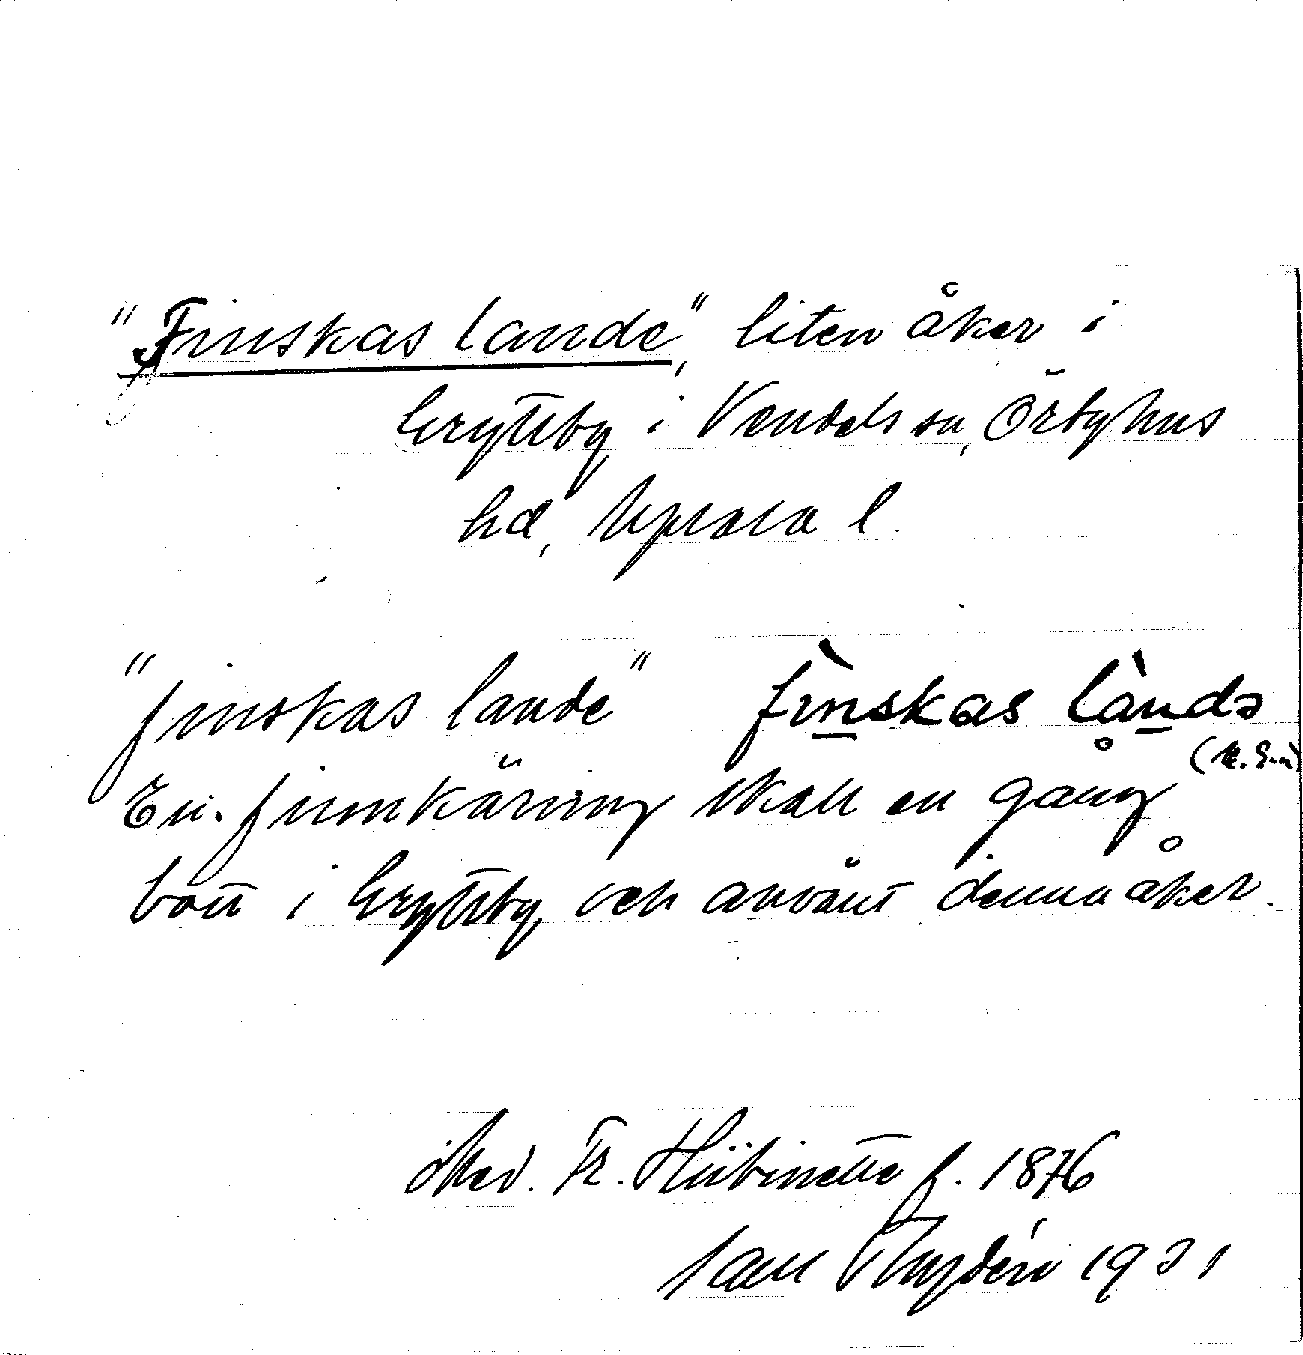 "Finskas lande", liten åker i
Gryttby i Vendels sn, Örbyhus
hd, Upsala l.
"finskas lande" fìnskas làndə
En finnkäring skall en gång
bott i Gryttby och använt denna åker.
Med. Fr. Hübinette f. 1876
Rydén 1931